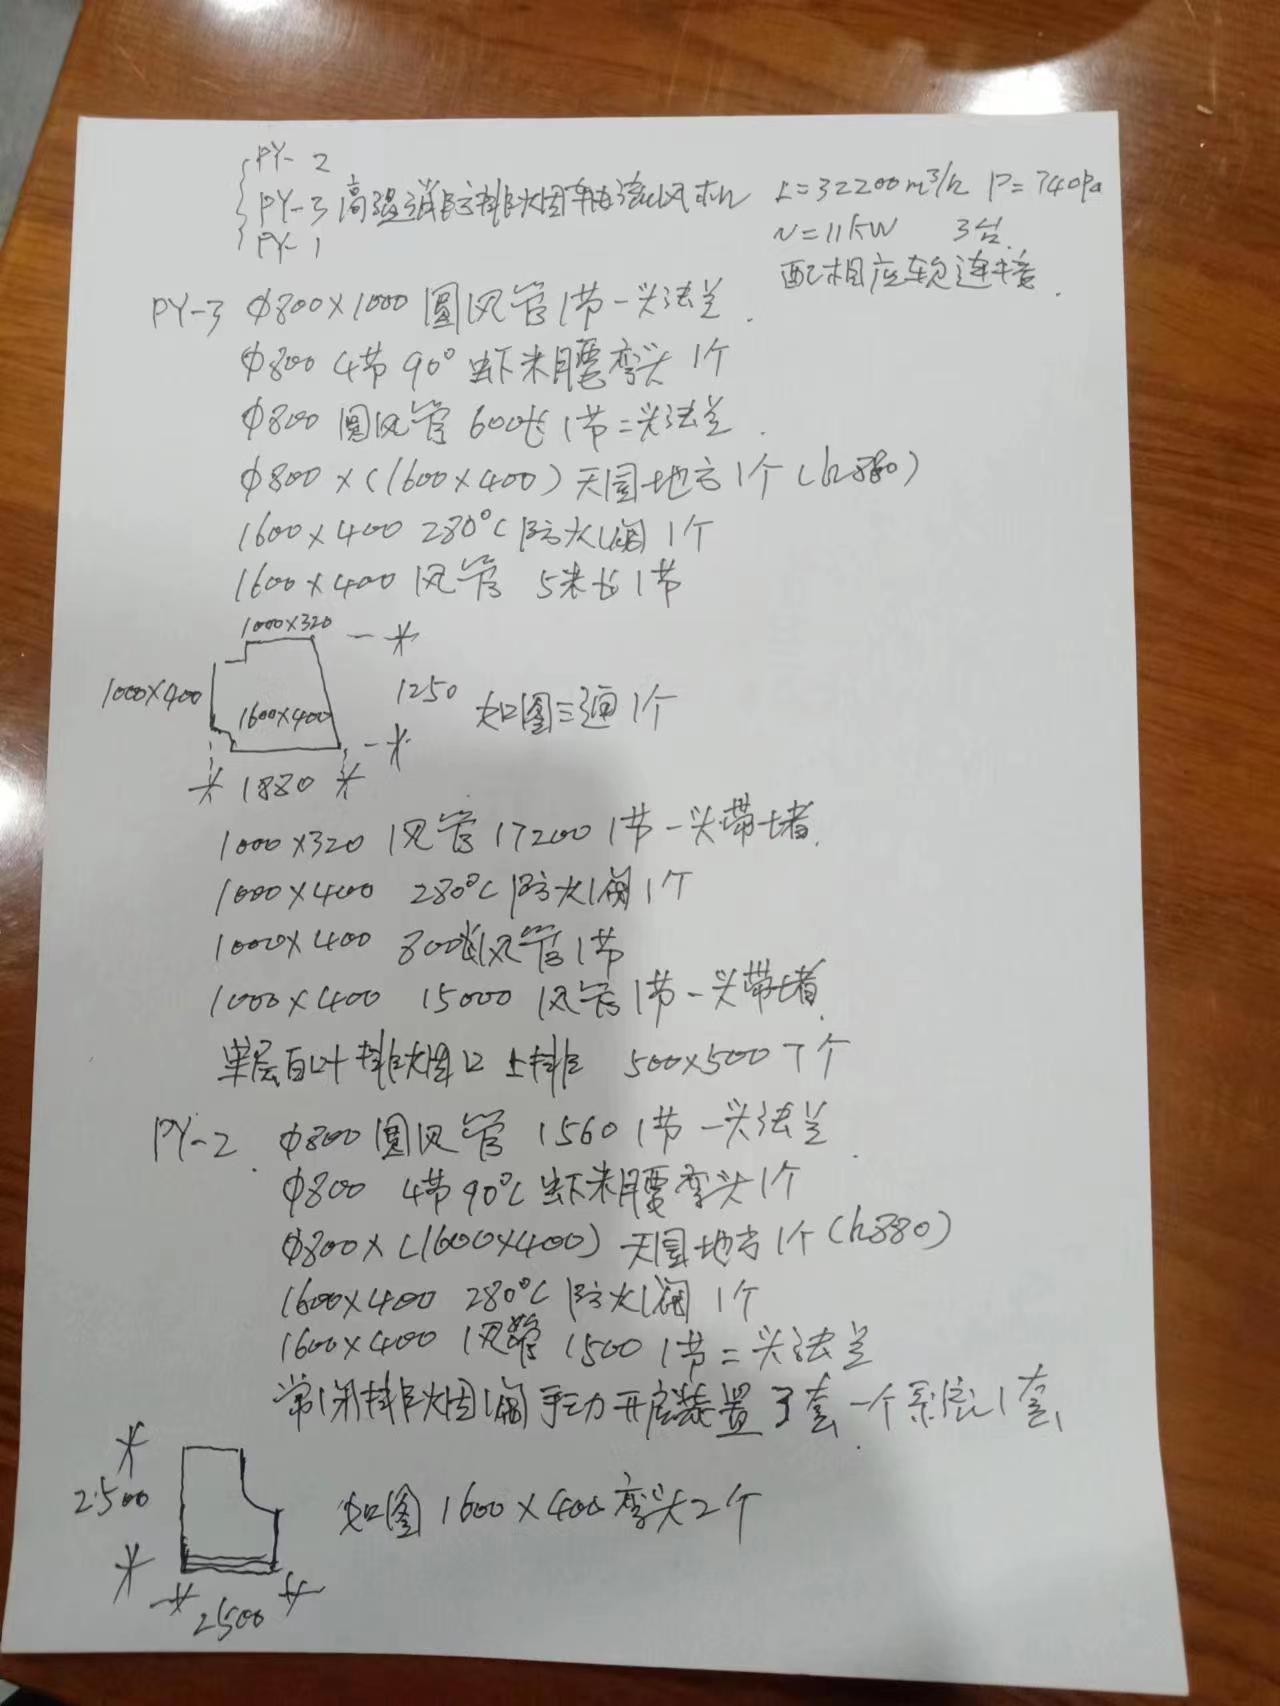 PY-2
PY-3 高温消防排烟轴流风机 L=32200m³/h P=740Pa
PY-1 N=11KW 3台.
配相应软连接.
PY-3 φ800×1000 圆风管1节一头法兰.
φ800 4节 90° 虾米腰弯头 1个
φ800 圆风管 600长 1节二头法兰.
φ800×(1600×400) 天圆地方 1个(h880)
1600×400 280°C 防火阀 1个
1600×400 风管 5米长 1节
1000×320
1000×400
1600×400
1250 如图三通 1个
1880
1000×320 风管 17200 1节一头带堵.
1000×400 280°C 防火阀 1个
1000×400 800长风管 1节
1000×400 15000 风管 1节一头带堵.
单层百叶排烟口 上排 500×500 7个
PY-2. φ800 圆风管 1560 1节一头法兰.
φ800 4节 90°C 虾米腰弯头 1个
φ800×(1600×400) 天圆地方 1个(h880)
1600×400 280°C 防火阀 1个
1600×400 风管 1500 1节二头法兰
常闭排烟阀手动开启装置 3套.一个系统1套
2500
如图 1600×400 弯头 2个
2500